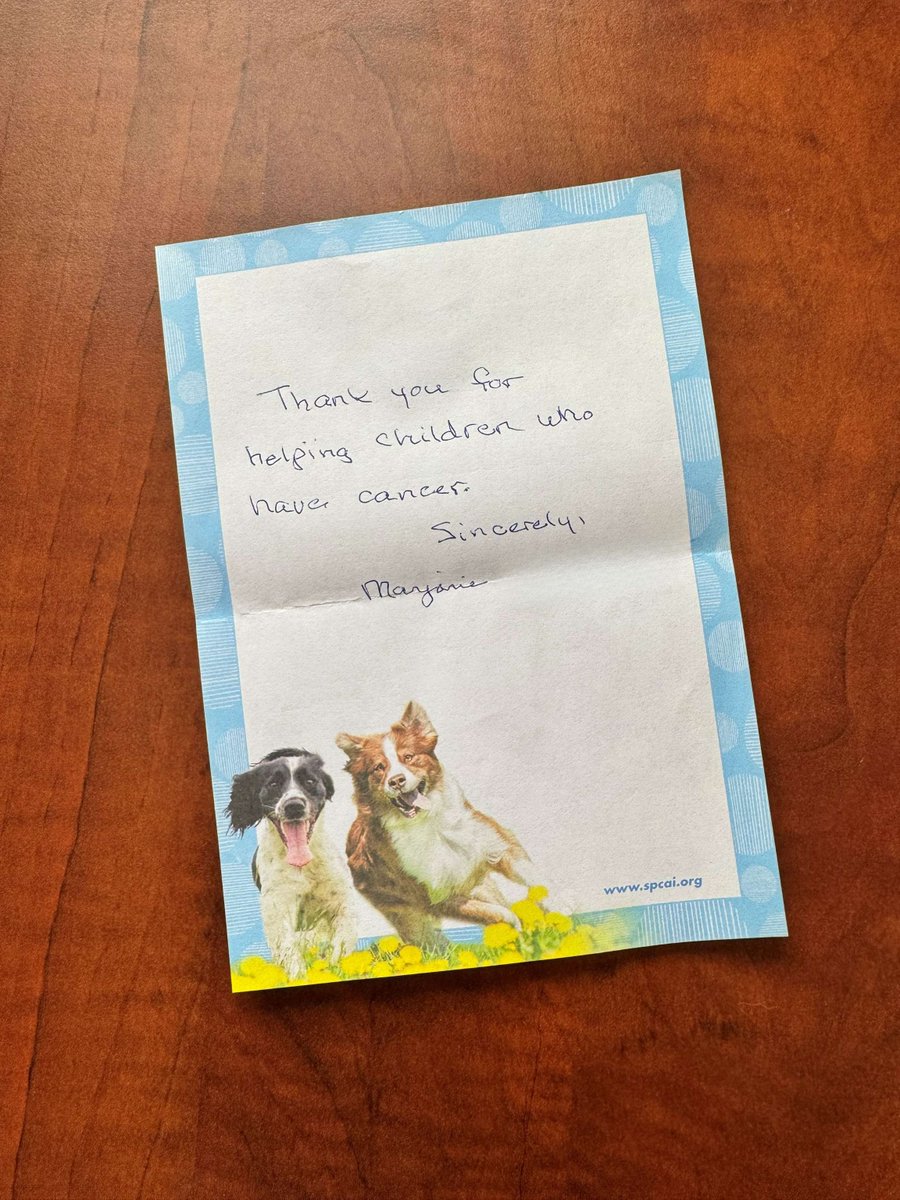 Thank you for
helping children who
have cancer.
Sincerely,
Marjorie
www.spcai.org